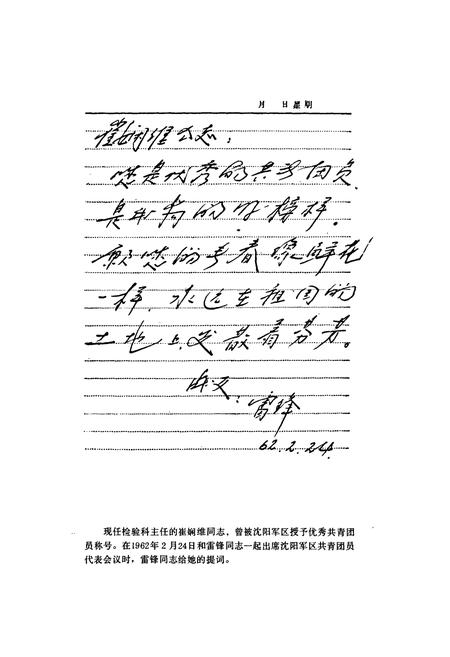 月 日星期
崔娴维同志：
您是优秀的共青团员
是我 的好榜样。
愿您的青春像鲜花
一样，永远在祖国的
土地上发散着芬芳。
战友：
雷锋
62.2.24.
现任检验科主任的崔娴维同志，曾被沈阳军区授予优秀共青团
员称号。在1962年2月24日和雷锋同志一起出席沈阳军区共青团员
代表会议时，雷锋同志给她的提词。